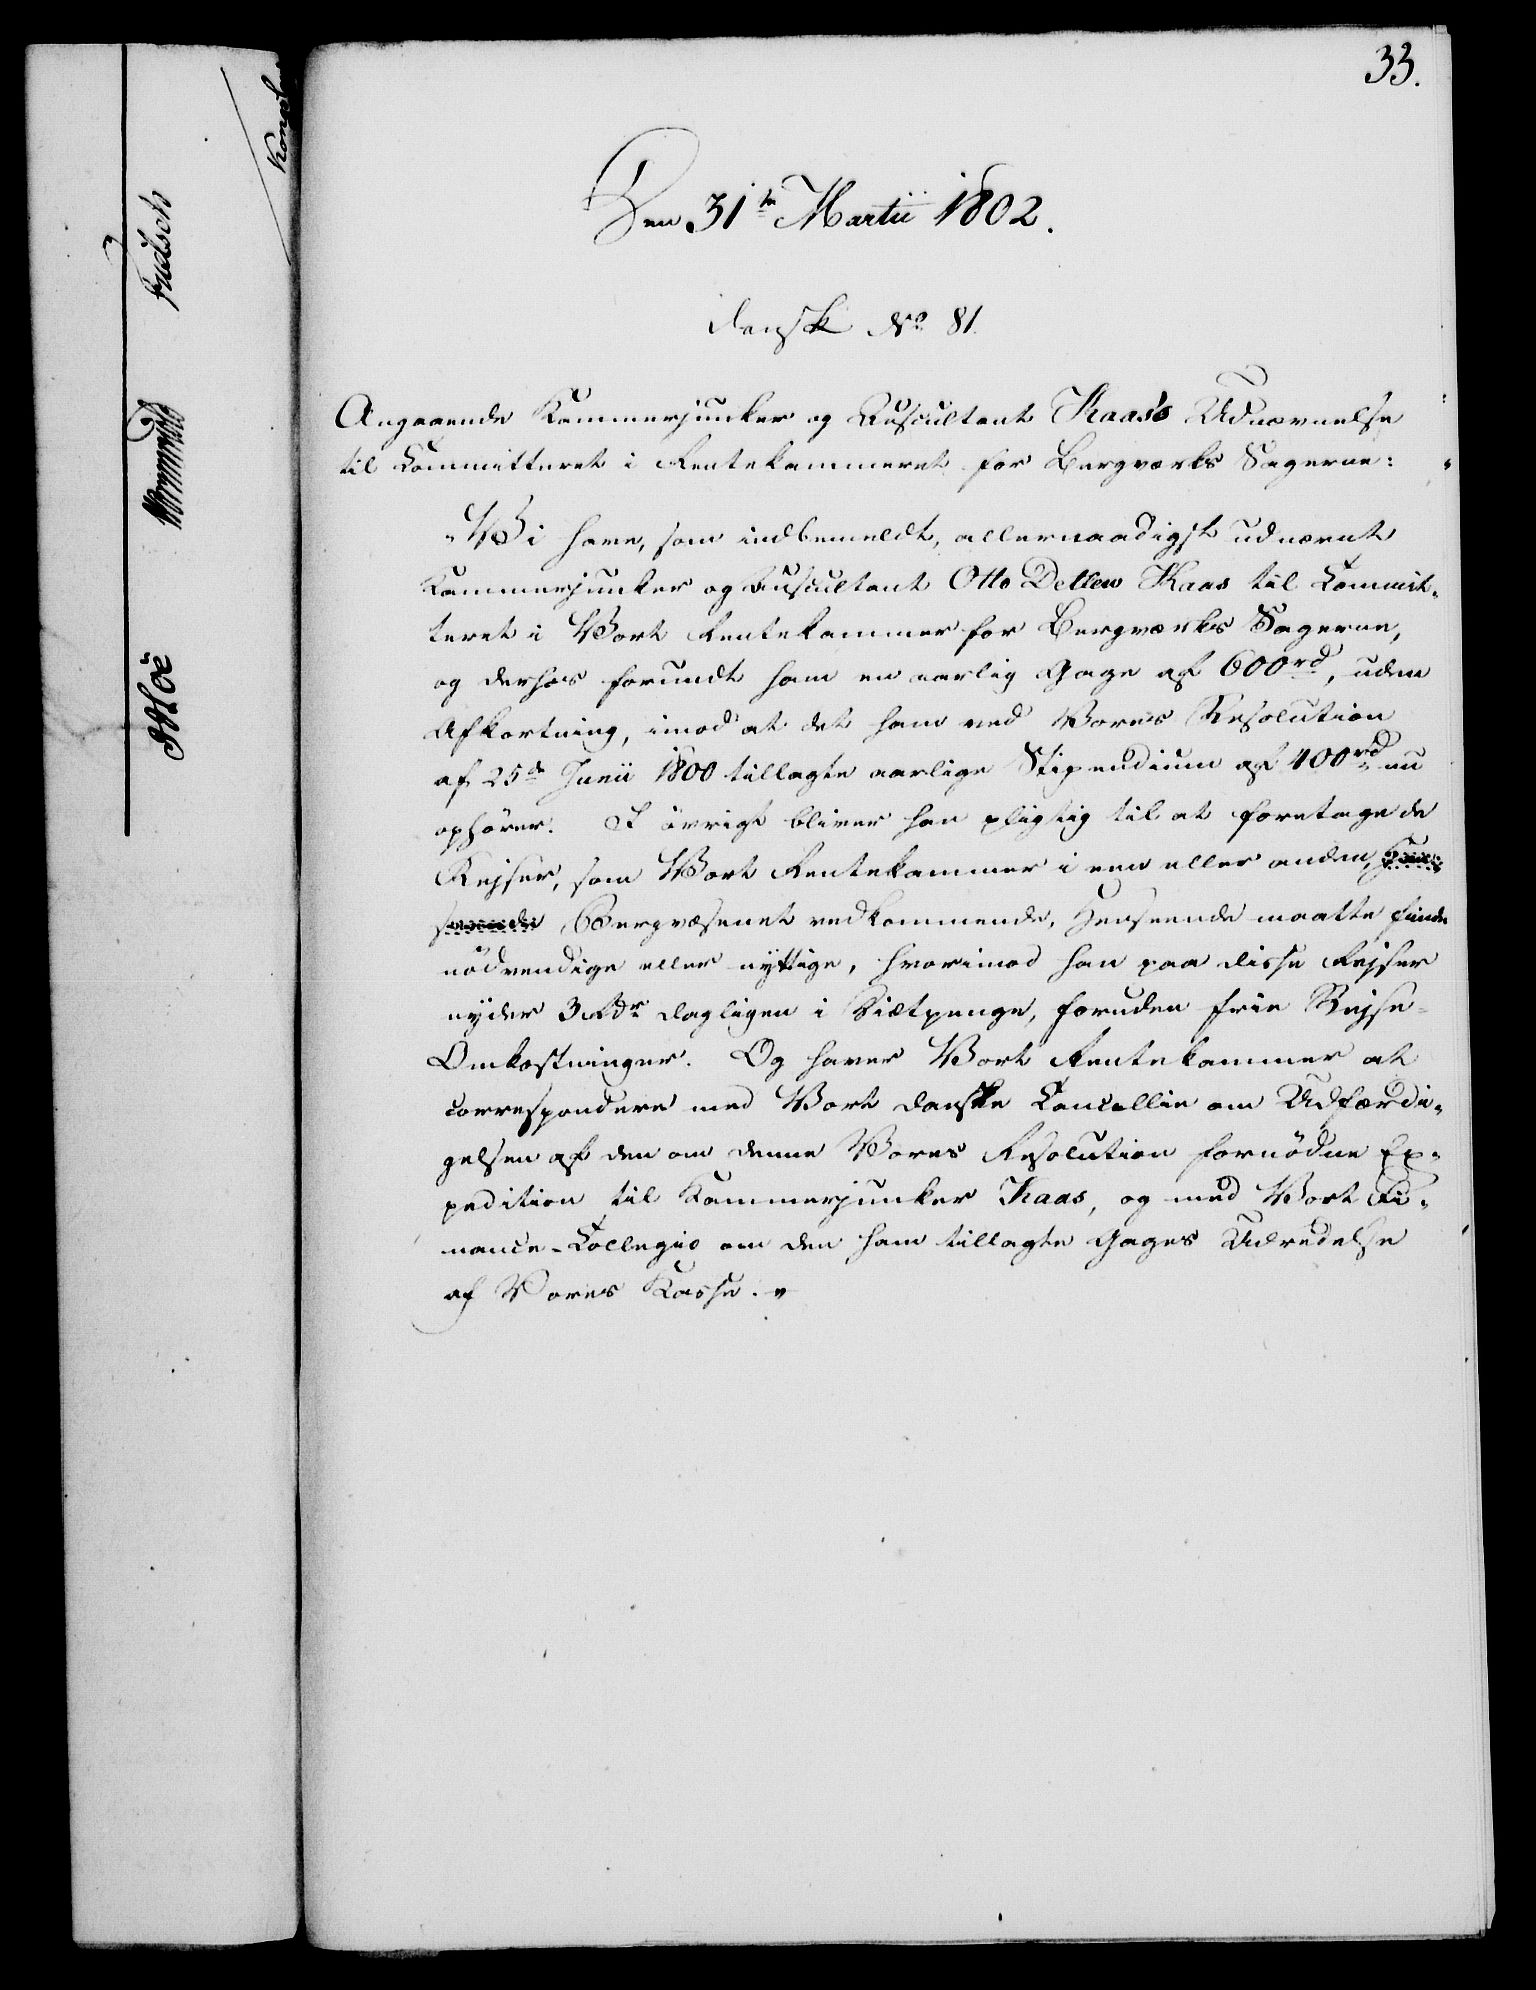 33.
Den 31te Martii 1802.
dansk No 81.
Angaaende Kammerjunker og Auscultant Kaas's Udnævnelse
til Committeret i Rentekammeret for Bergværks Sagerne:
"Vi have, som indbemeldt, allernaadigst udnævnt
Kammerjunker og Auscultant Otto Detlew Kaas til Commit-
teret i Vort Rentekammer for Bergværks Sagerne,
og derhos forundt ham en aarlig Gage af 600rd, uden
Afkortning, imod at det ham ved Vores Resolution
af 25de Junii 1800 tillagte aarlige Stipendium af 400rd nu
ophører. I övrigt bliver han pligtig til at foretage de
Rejser, som Vort Rentekammer i een eller anden, Hen-
seende Bergvæsenet vedkommende, Henseende maatte finde
nödvendige eller nyttige, hvorimod han paa disse Rejser
nyder 3 Rdr dagligen i Diætpenge, foruden frie Rejse-
Omkostninger. Og haver Vort Rentekammer at
correspondere med Vort danske Cancellie om Udfærdi-
gelsen af den om denne Vores Resolution fornödne Ex-
pedition til Kammerjunker Kaas, og med Vort Fi-
nance-Collegio om den ham tillagte Gages Udredelse
af Vores Kasse."
Moe
Wormskiold
Fridsch